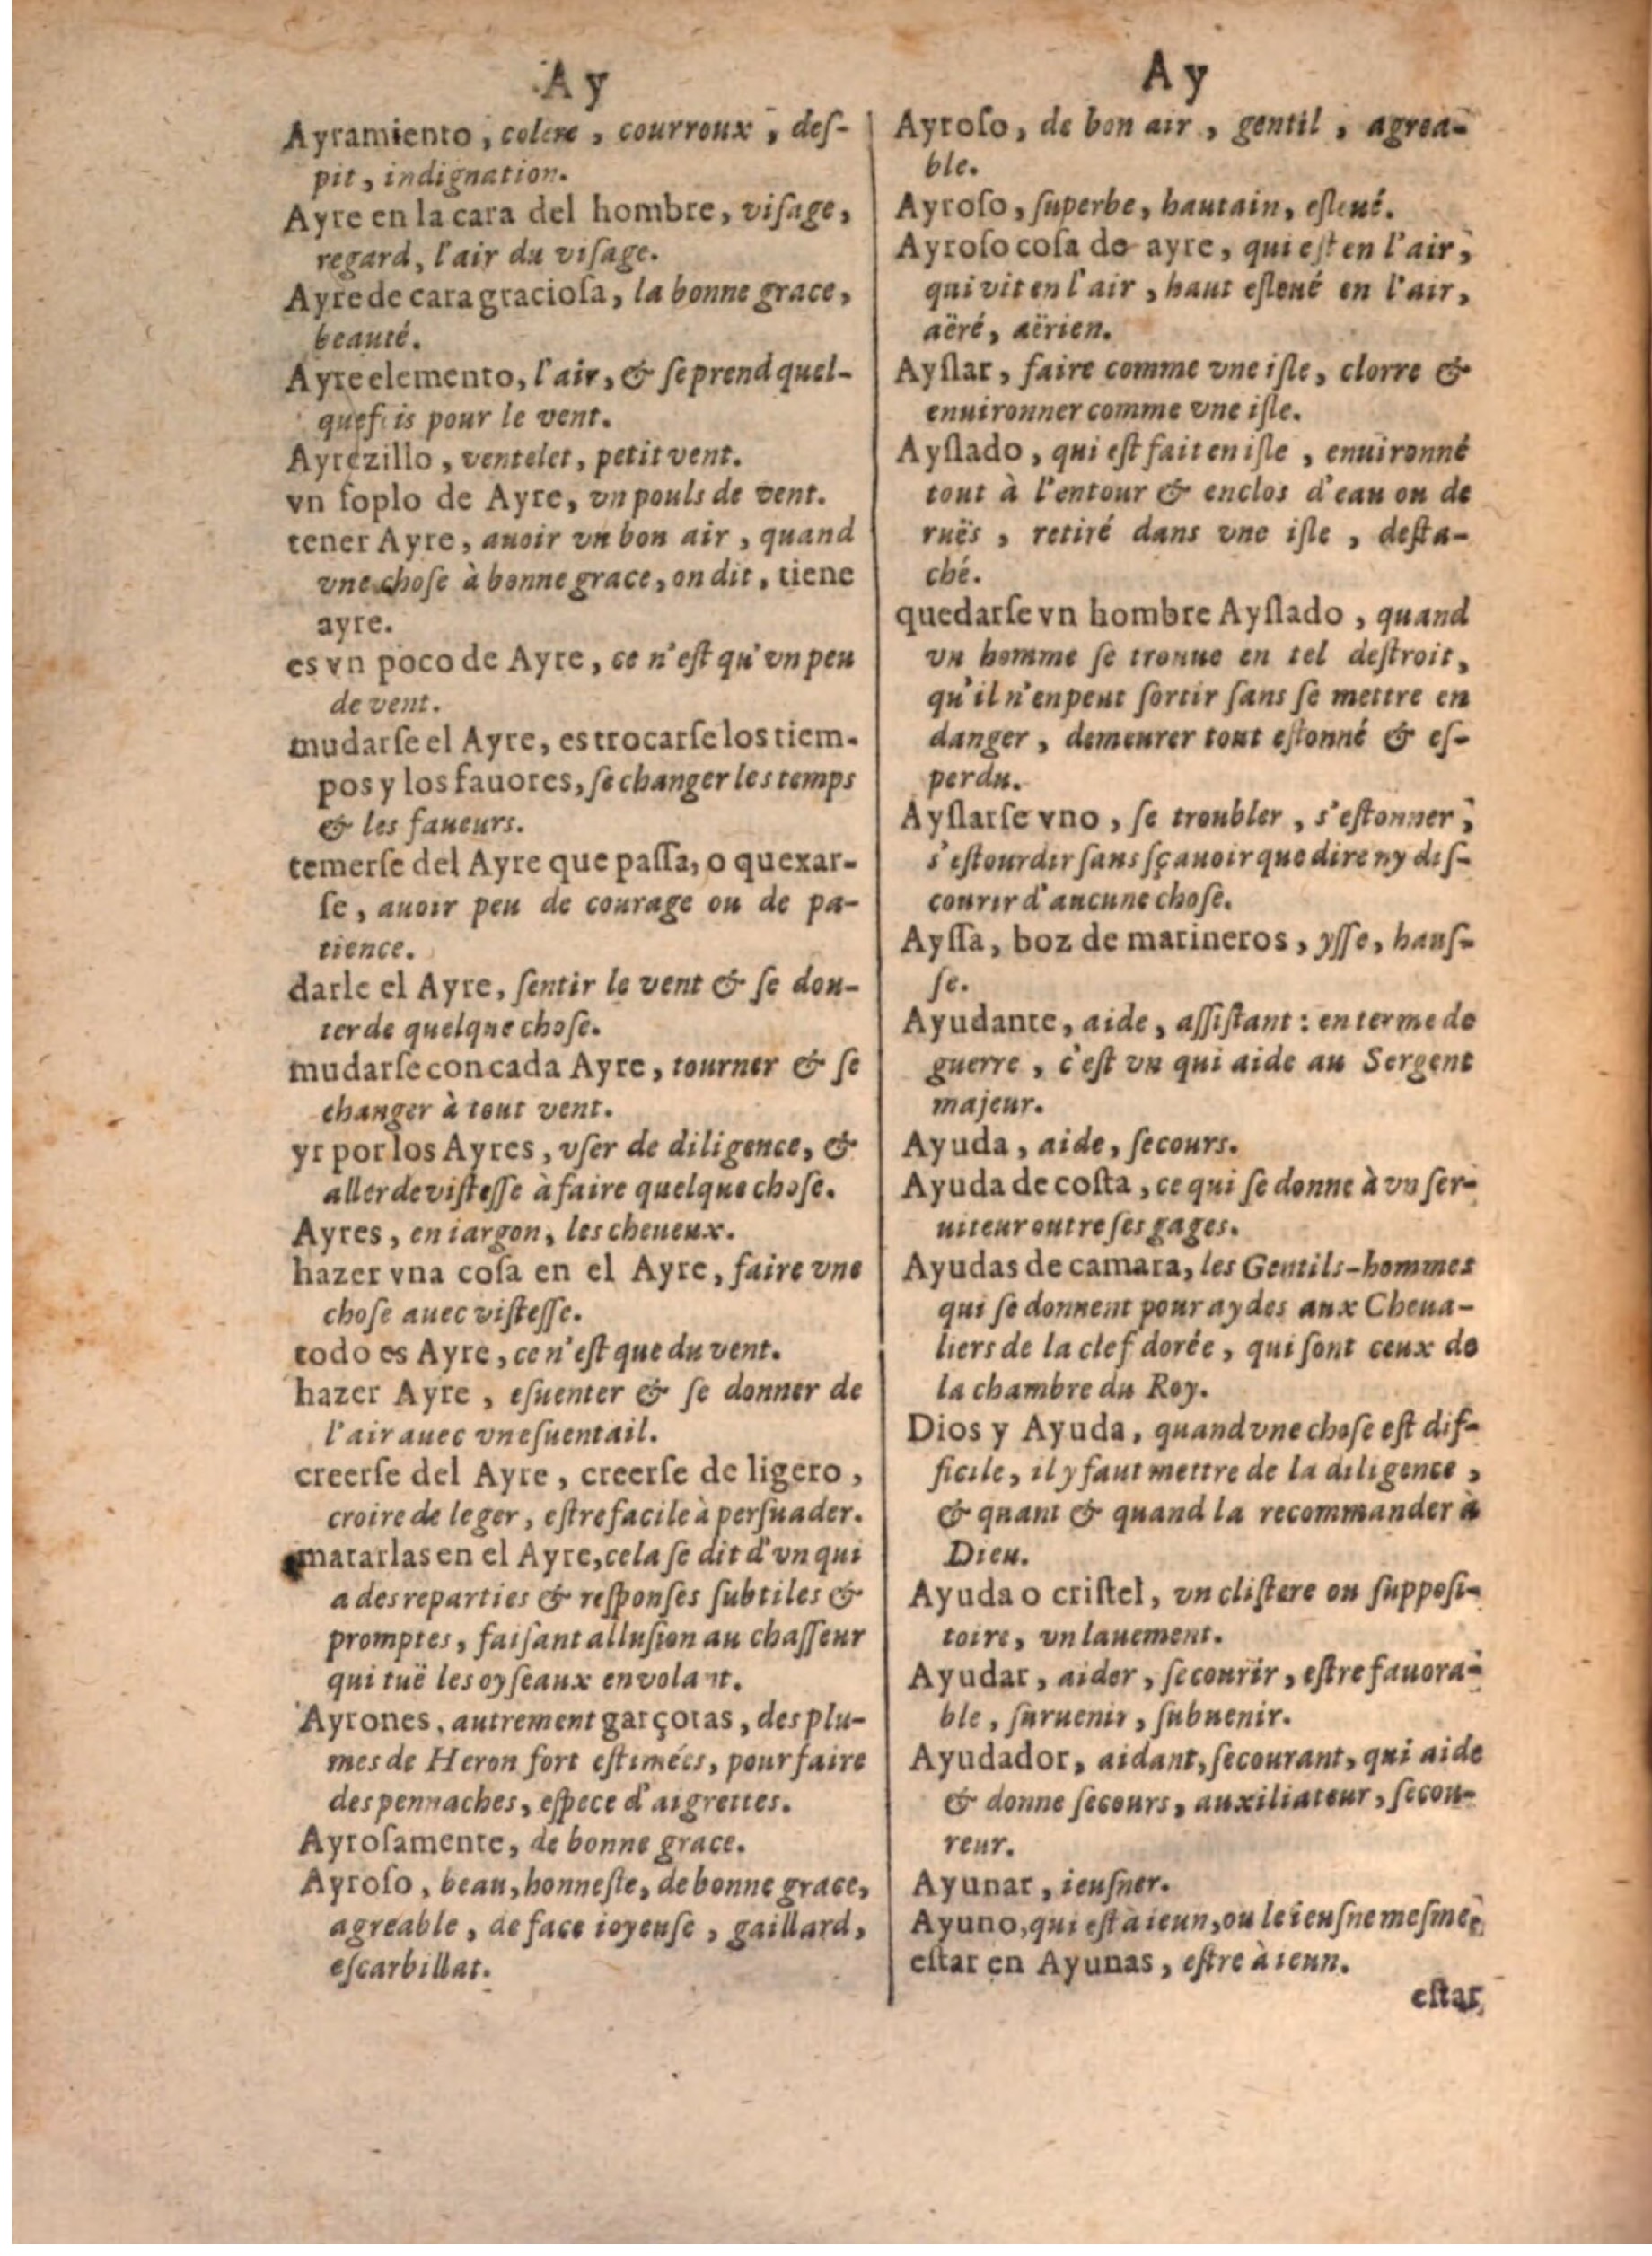 Ay
Ayramiento, colere, courroux, deſ-
pit, indignation.
Ayre en la cara del hombre, viſage,
regard, l'air du viſage.
Ayre de cara gracioſa, la bonne grace,
beauté.
Ayre elemento, l'air, & ſe prend quel-
quefois pour le vent.
Ayrezillo, ventelet, petit vent.
vn ſoplo de Ayre, vn pouls de vent.
tener Ayre, auoir vn bon air, quand
vne choſe à bonne grace, on dit, tiene
ayre.
es vn poco de Ayre, ce n'eſt qu'vn peu
de vent.
mudarſe el Ayre, es trocarſe los tiem-
pos y los fauores, ſe changer les temps
& les faueurs.
temerſe del Ayre que paſſa, o quexar-
ſe, auoir peu de courage ou de pa-
tience.
darle el Ayre, ſentir le vent & ſe dou-
ter de quelque choſe.
mudarſe con cada Ayre, tourner & ſe
changer à tout vent.
yr por los Ayres, vſer de diligence, &
aller de viſteſſe à faire quelque choſe.
Ayres, en iargon, les cheueux.
hazer vna coſa en el Ayre, faire vne
choſe auec viſteſſe.
todo es Ayre, ce n'eſt que du vent.
hazer Ayre, eſuenter & ſe donner de
l'air auec vn eſuentail.
creerſe del Ayre, creerſe de ligero,
croire de leger, eſtre facile à perſuader.
matarlas en el Ayre, cela ſe dit d'vn qui
a des reparties & reſponſes ſubtiles &
promptes, faiſant alluſion au chaſſeur
qui tuë les oyſeaux en volant.
Ayrones, autrement garçotas, des plu-
mes de Heron fort eſtimées, pour faire
des pennaches, eſpece d'aigrettes.
Ayroſamente, de bonne grace.
Ayroſo, beau, honneſte, de bonne grace,
agreable, de face ioyeuſe, gaillard,
eſcarbillat.
Ay
Ayroſo, de bon air, gentil, agrea-
ble.
Ayroſo, ſuperbe, hautain, eſleué.
Ayroſo coſa de ayre, qui eſt en l'air,
qui vit en l'air, haut eſleué en l'air,
aëré, aërien.
Ayſlar, faire comme vne iſle, clorre &
enuironner comme vne iſle.
Ayſlado, qui eſt fait en iſle, enuironné
tout à l'entour & enclos d'eau ou de
ruës, retiré dans vne iſle, deſta-
ché.
quedarſe vn hombre Ayſlado, quand
vn homme ſe trouue en tel deſtroit,
qu'il n'en peut ſortir ſans ſe mettre en
danger, demeurer tout eſtonné & eſ-
perdu.
Ayſlarſe vno, ſe troubler, s'eſtonner,
s'eſtourdir ſans ſçauoir que dire ny diſ-
courir d'aucune choſe.
Ayſſa, boz de marineros, yſſe, hauſ-
ſe.
Ayudante, aide, aſſiſtant: en terme de
guerre, c'eſt vn qui aide au Sergent
majeur.
Ayuda, aide, ſecours.
Ayuda de coſta, ce qui ſe donne à vn ſer-
uiteur outre ſes gages.
Ayudas de camara, les Gentils-hommes
qui ſe donnent pour aydes aux Cheua-
liers de la clef dorée, qui ſont ceux de
la chambre du Roy.
Dios y Ayuda, quand vne choſe eſt dif-
ficile, il y faut mettre de la diligence,
& quant & quand la recommander à
Dieu.
Ayuda o criſtel, vn cliſtere ou ſuppoſi-
toire, vn lauement.
Ayudar, aider, ſecourir, eſtre fauora-
ble, ſuruenir, ſubuenir.
Ayudador, aidant, ſecourant, qui aide
& donne ſecours, auxiliateur, ſecou-
reur.
Ayunar, ieuſner.
Ayuno, qui eſt à ieun, ou le ieuſne meſme,
eſtar en Ayunas, eſtre à ieun.
eſtar